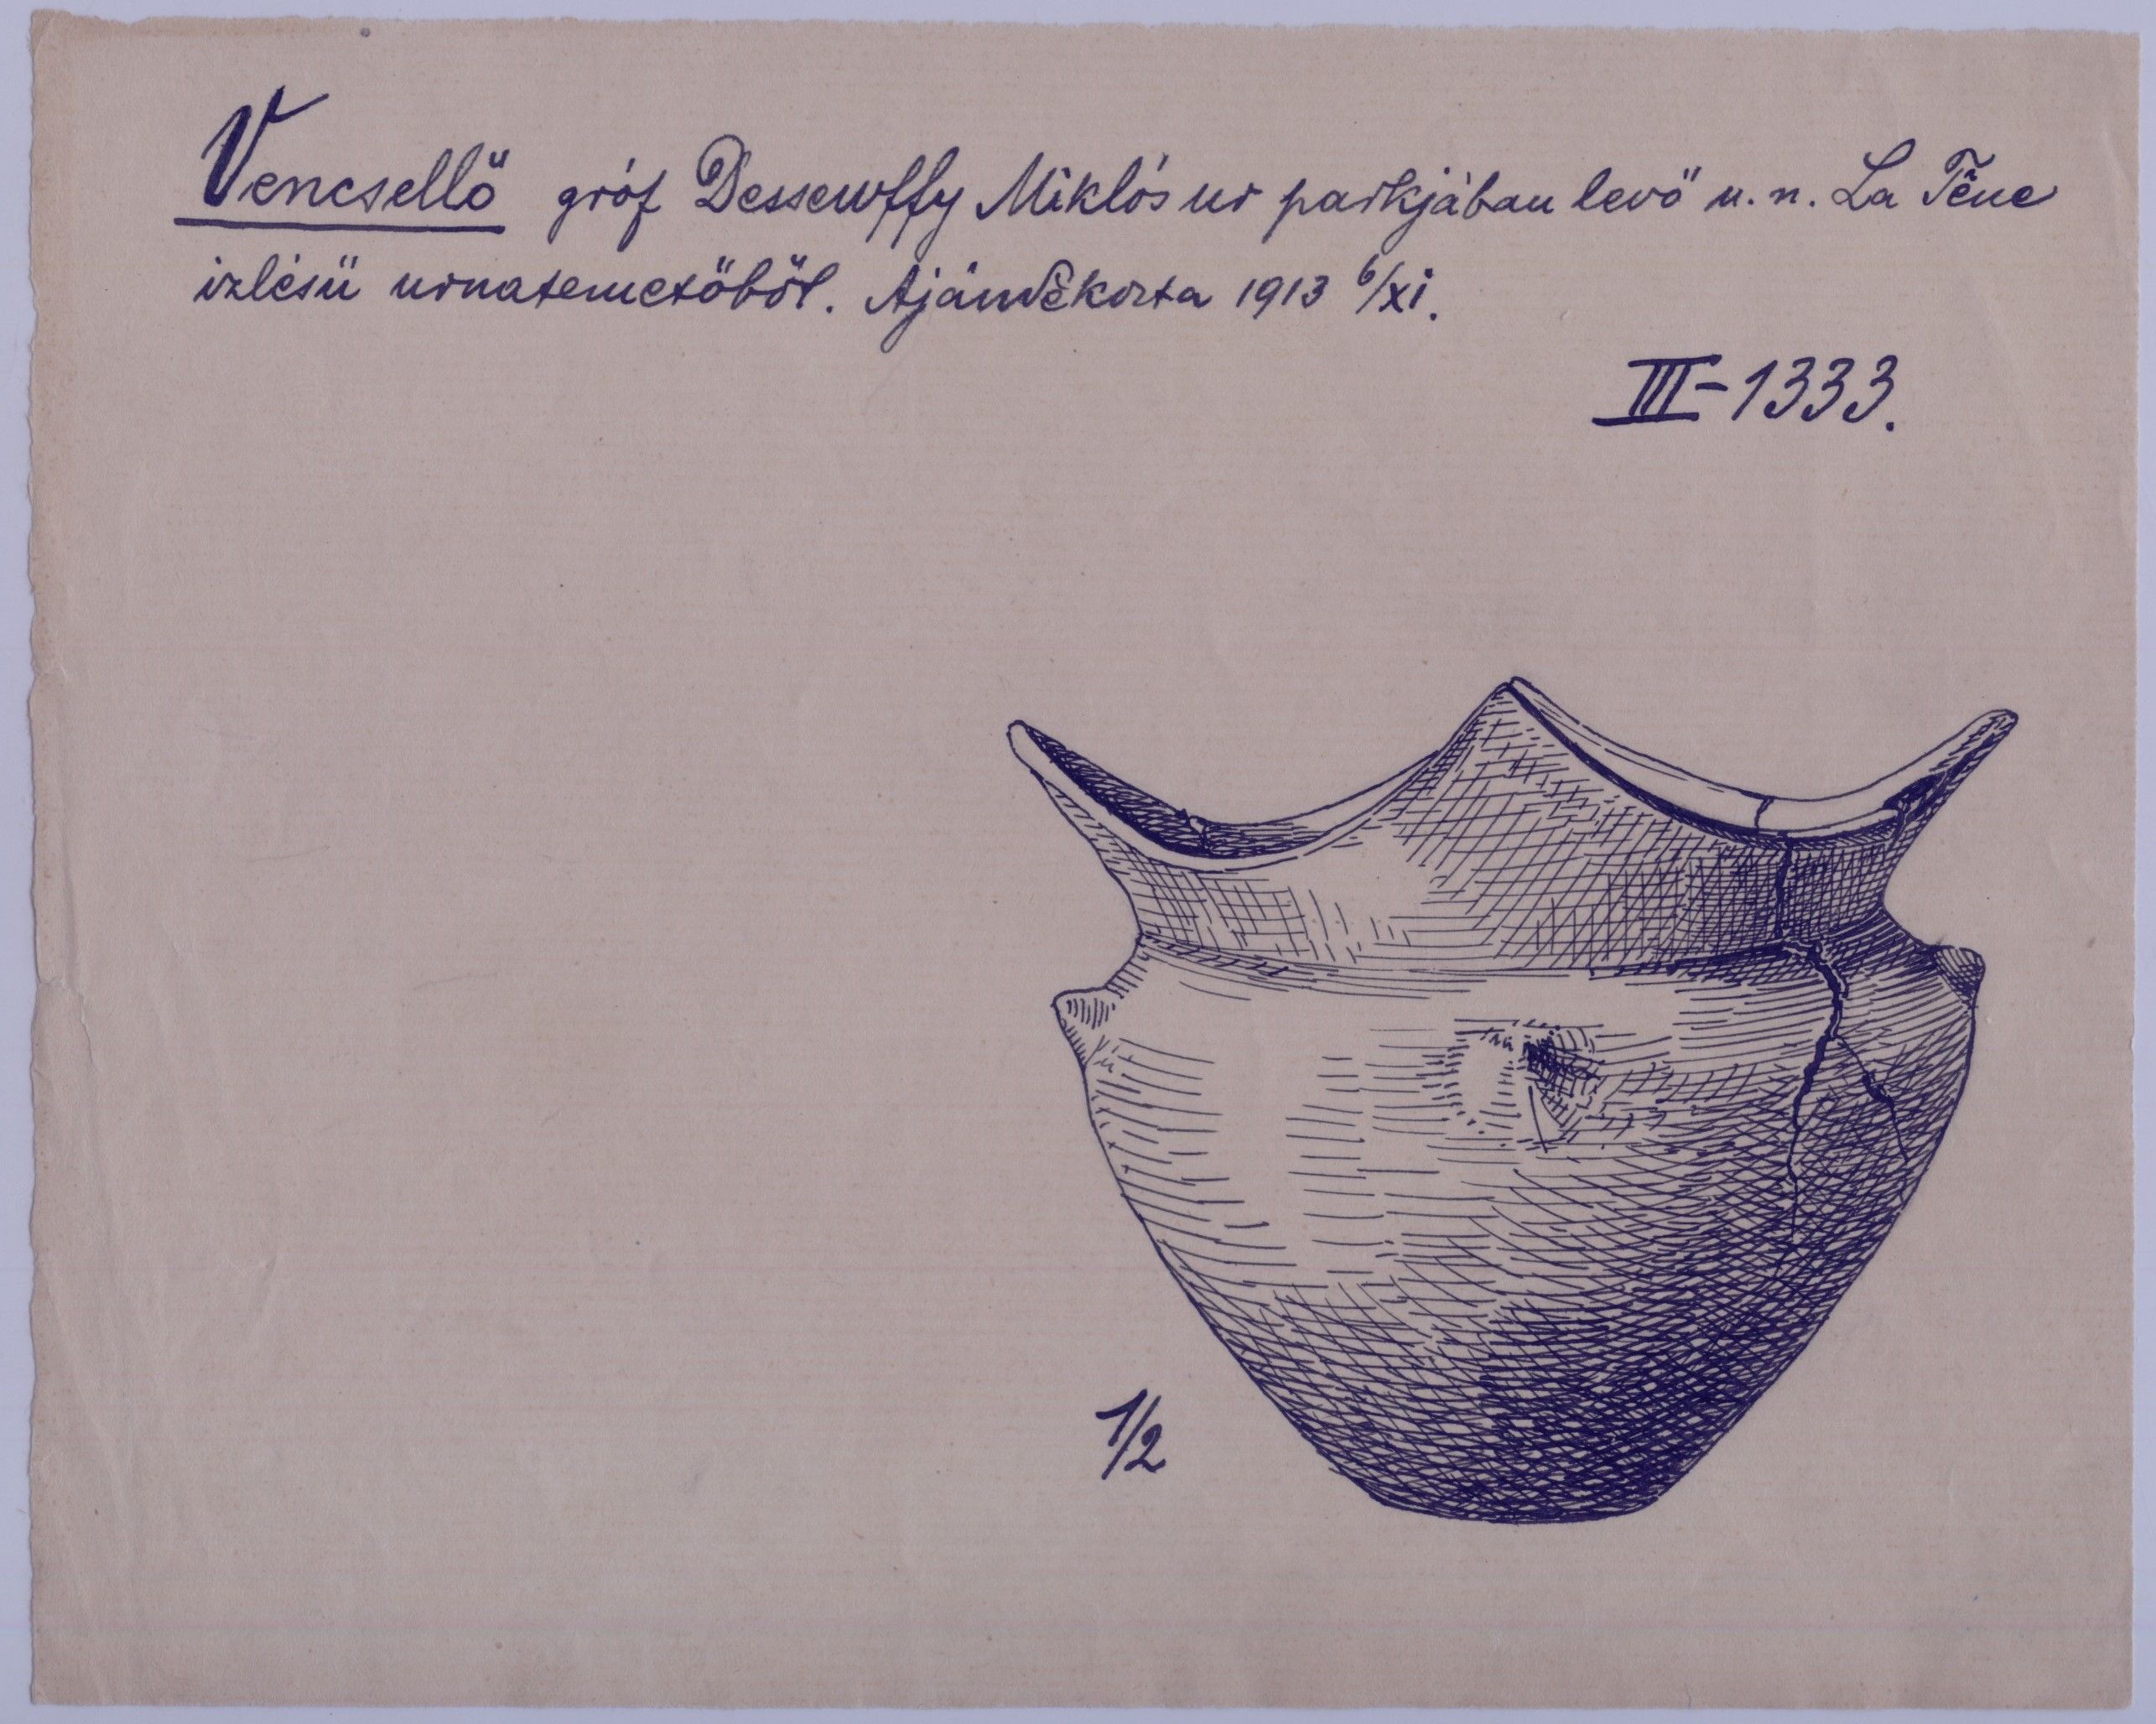 Vencsellö gróf Dessewffy Miklós ur parkjában levö u. n. La Têne
izlésü urnatemetöböl. Ajándékozta 1913 6/XI.
III-1333.
1/2